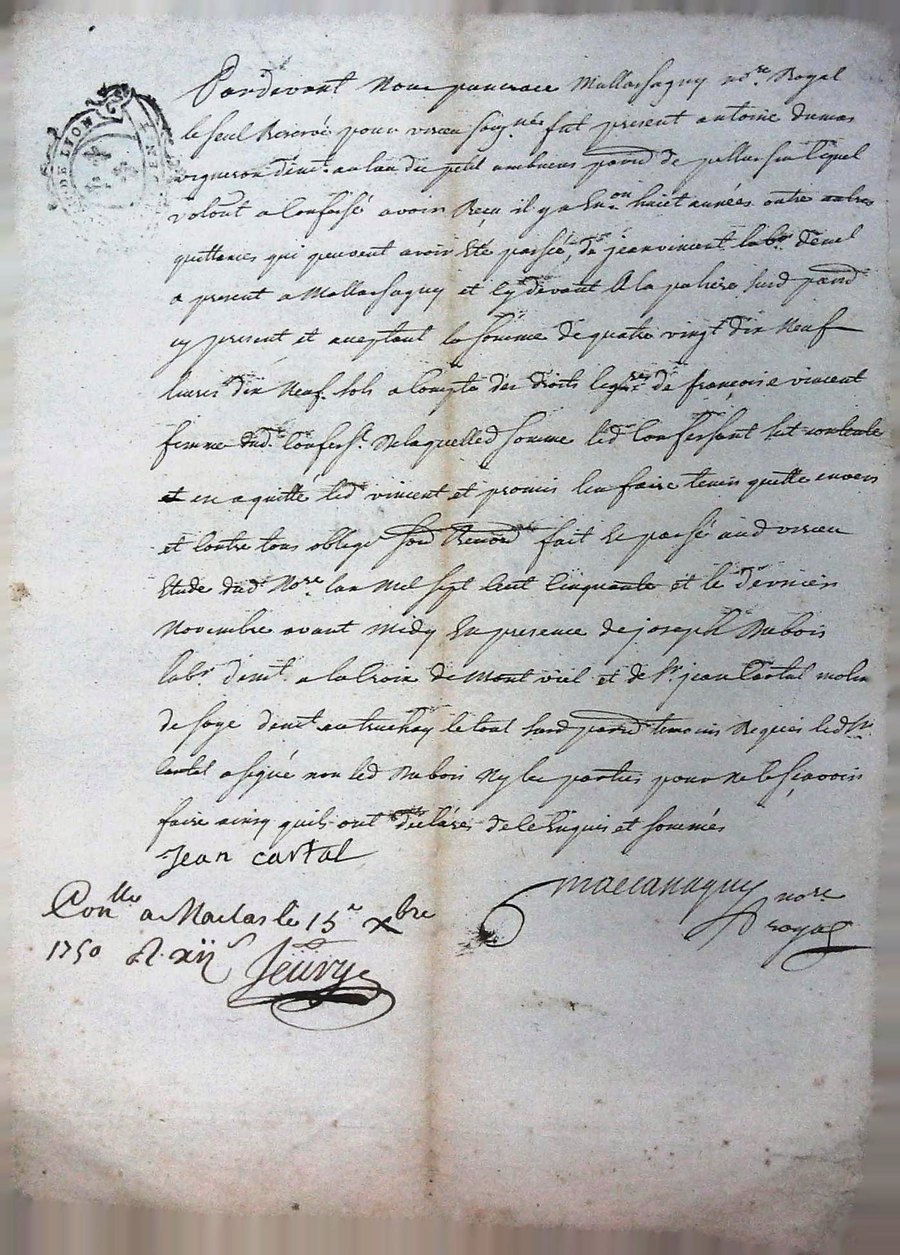 DE LYON GEN
Pardevant Nous pancrace Mallassaguy no.re Royal
le seul Reservé pour virieu soug.né fut present antoine dumas
vigneron dem.t au lieu du petit embuens par.d de pellussin lequel
volont. a Confessé avoir Reçu il y a En.on huict années outre autres
quittances qui peuvent avoir Eté passée, de jean vincent lab.r dem.t
a present a Mallassaguy et Cy devant A la paliere sus.d par.d
cy present et aceptant la somme de quatre vingt dix Neuf
livres dix Neuf sols a Compte des droits leg.res de françoise vincent
femme dud. Confess.t De laquelle d. somme led. Confessant s'est contenté
et en a quitté led. vincent et promis l'en faire tenir quitte envers
et Contre tous oblige. soub. Renond. fait Et passé aud. virieu
Etude dud. No.re lan Mil sept Cent Cinquante et le dernier
Novembre avant Midy En presence de joseph Dubois
lab.r dem.t a la Croix de Montviel et de S.r jean Cartal molin.
de soye dem.t au truchay le tout sus.d par.d temoins Requis led. S.r
Cartal a signé non led. Dubois Ny les parties pour Ne le sçavoir
faire ainsy quils ont déclarés de ce Enquis et sommés
Jean cartal
mallassaguy no.re
royal
Con.lle a Maclas le 15.e X.bre
1750 R. xij s
Jeüvy